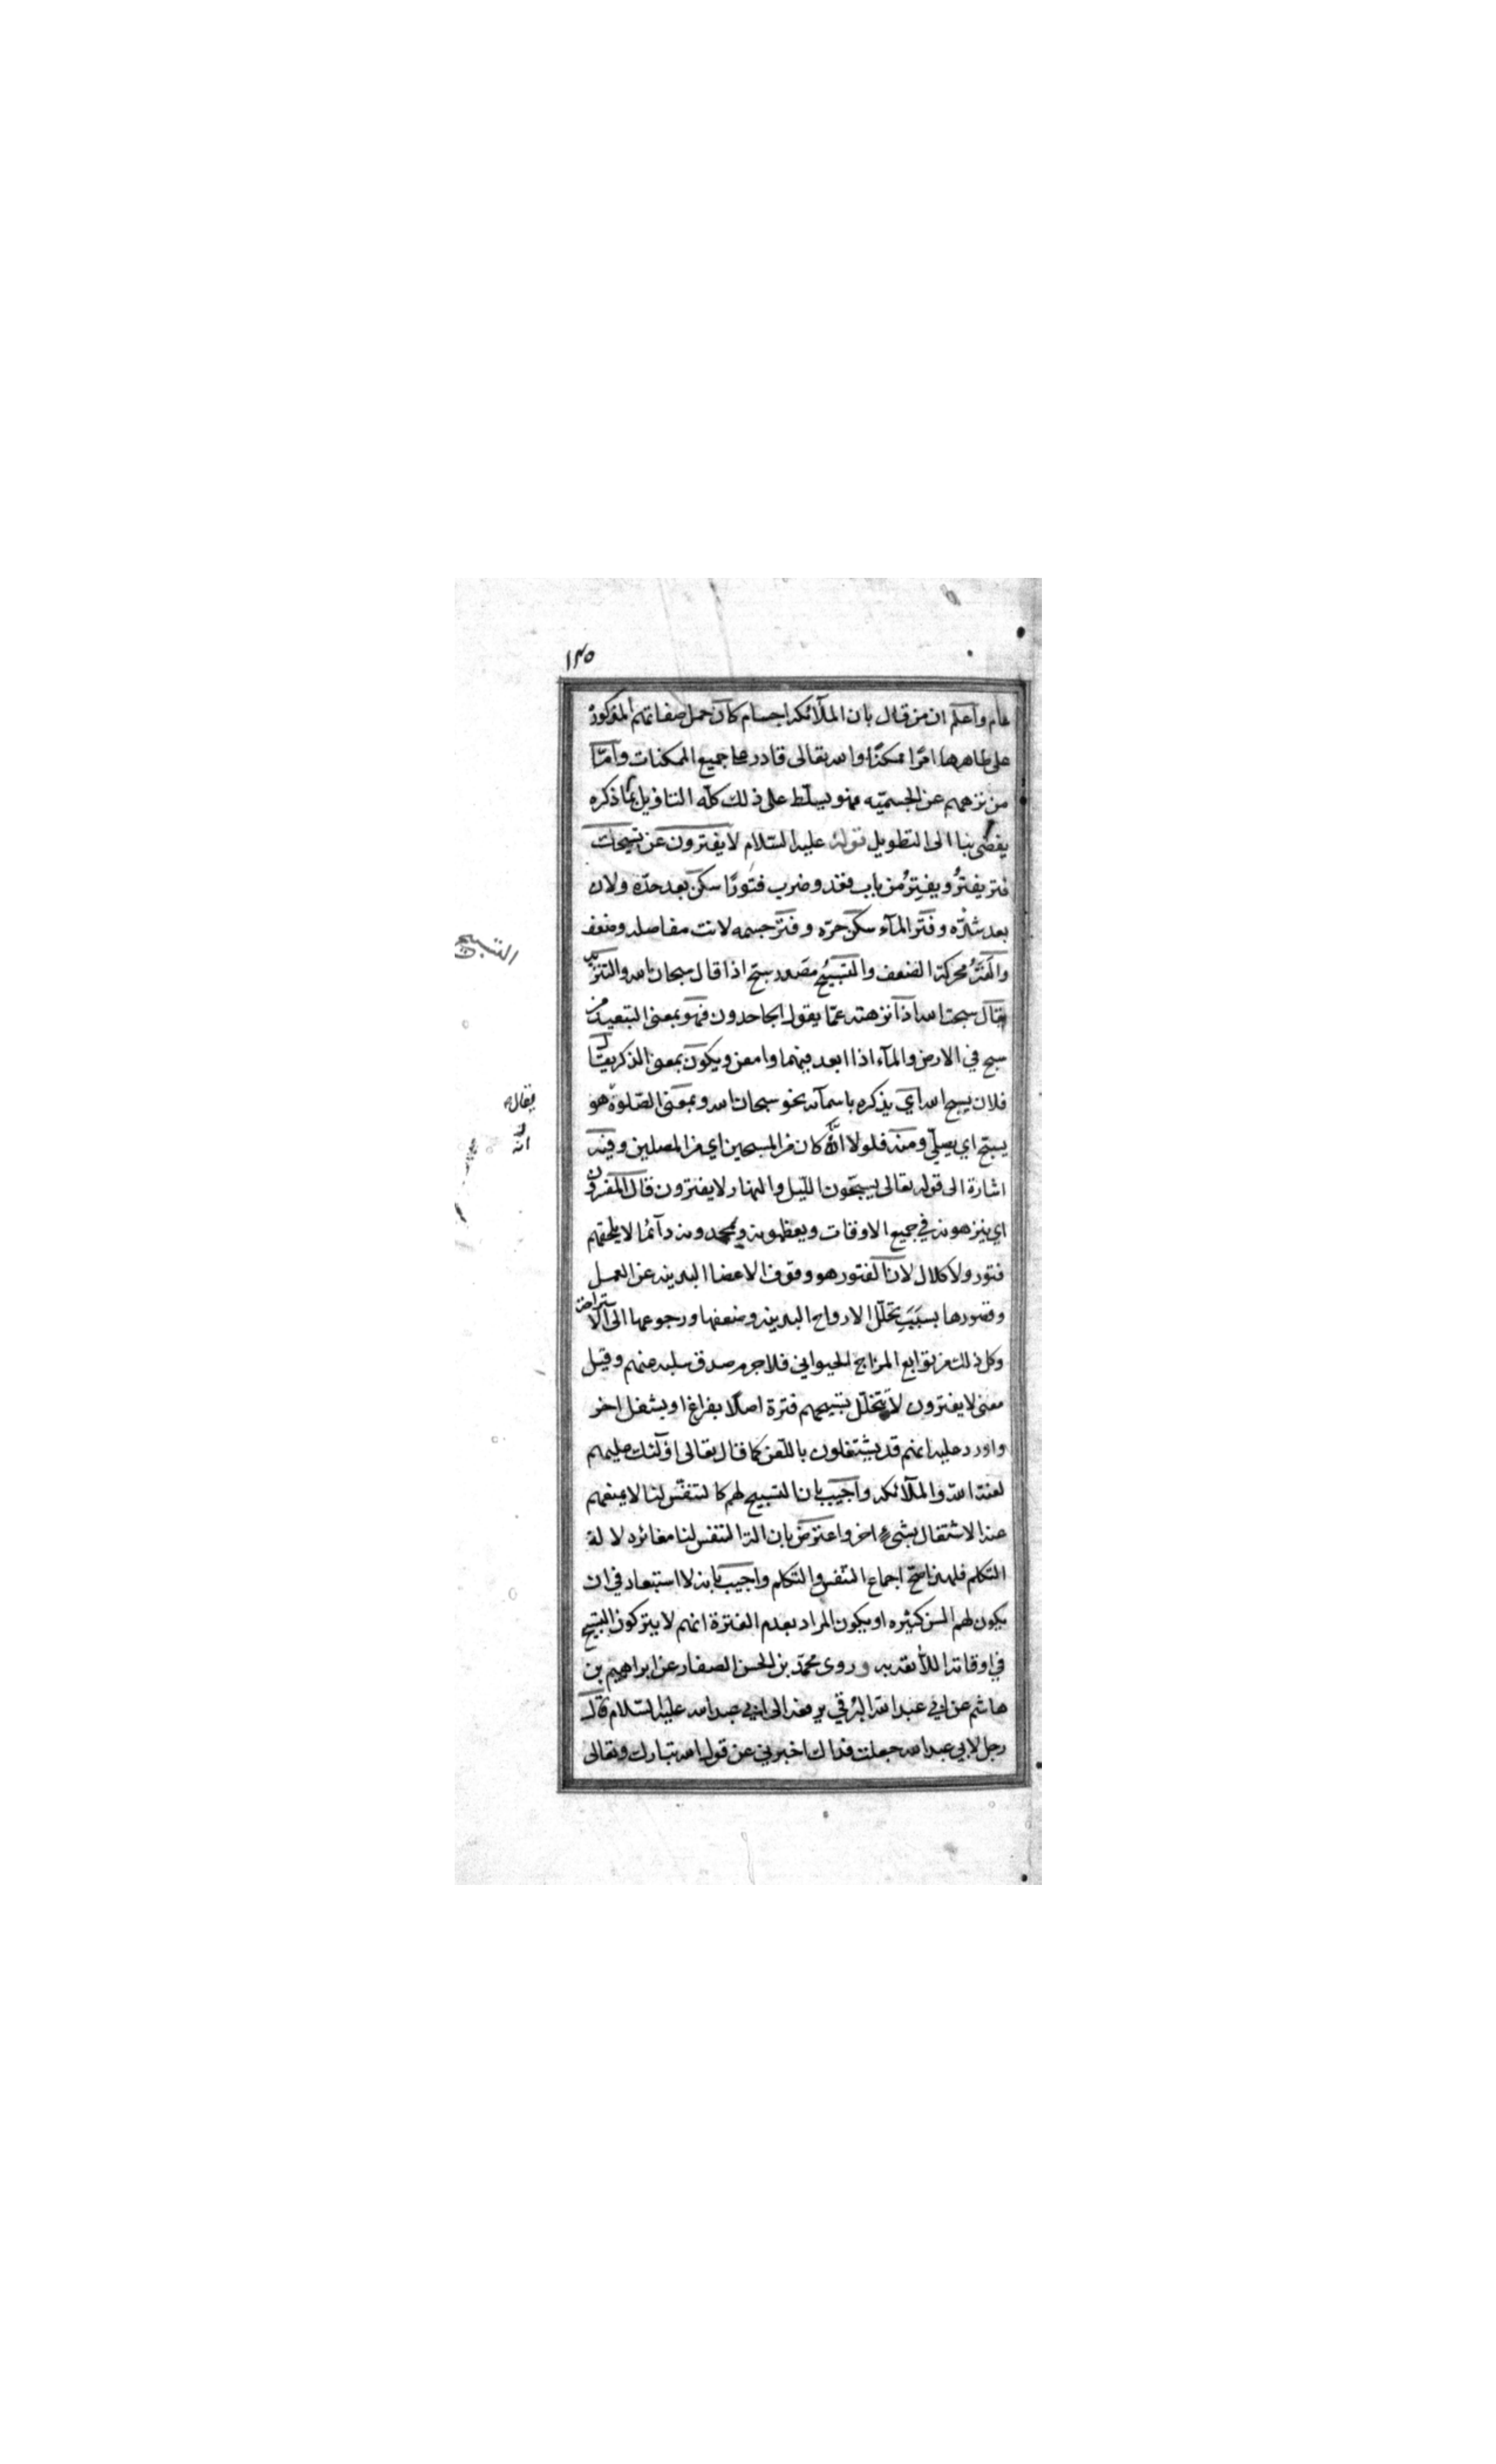 ١٣٥
عام واعلم ان من قال بان الملآئكه اجسام كان حمل صفاتهم المذكورة
على ظاهرها امرًا ممكنًا والله تعالى قادر على جميع الممكنات وامّا
من نزههم عن الجسميّه فهو يسلّط على ذلك كلّه التاويل بما ذكره
يفضى بنا الى التطويل قوله عليه السّلام لا يفترون عن تسبيحك
فتر يفترُ ويفتِرُ من باب قعد وضرب فتورًا سكن بعد حدّه ولان
بعد شدّته وفتر المآء سكن حرّه وفتر جسمه لانت مفاصله وضعف
والفَتَرُ محركة الضعف والتسبيحُ مصدر سبّح اذا قال سبحان الله والتنزيه
يقال سبحت الله اذا نزهته عمّا يقول الجاحدون فهو بمعنى التبعيد من
سبح في الارض والمآء اذا ابعد فيهما وامعن ويكون بمعنى الذكر يقال
فلان يسبح الله اي يذكره باسمآئه نحو سبحان الله وبمعنى الصّلوة هو
يسبّح اي يصلّي ومنه فلولا انّه كان من المسبحين اي من المصلين وفيه
اشارة الى قوله تعالى يسبحّون اللّيل والنهار لا يفترون قال المفسرون
اي ينزهونه في جميع الاوقات ويعظمونه ويمجدونه دآئمًا لا يلحقهم
فتور ولا كلال لان الفتور هو وقوف الاعضا البدنية عن العمل
وقصورها بسبب تحلّل الارواح البدنية وضعفها ورجوعها الى الاستراحة
وكل ذلك من توابع المزاج الحيواني فلا جرم صدق سلبه عنهم وقيل
معنى لا يفترون لا يتخلّل تسبيحهم فترة اصلًا بفراغ او بشغل اخر
واورد عليه انهم قد يشتغلون باللّعن كما قال تعالى اولٓئك عليهم
لعنة الله والملآئكه واجيب بان التسبيح لهم كالتنفّس لنا لا يمنعهم
عنه الاشتغال بشيء اخر واعترض بان الة التنفس لنا مغائره لالة
التكلم فلهذا صحّ اجماع التنفس والتكلم واجيب بانه لا استبعاد في ان
يكون لهم السن كثيره او يكون المراد بعدم الفترة انهم لا يتركون التسبيح
في اوقاته اللائقة به وروى محمّد بن الحسن الصفار عن ابراهيم بن
هاشم عن ابي عبد الله البرقي يرفعه الى ابي عبد الله عليه السّلام قال
رجل لابي عبد الله جعلت فداك اخبرني عن قول الله تبارك وتعالى
التسبيح
يقال